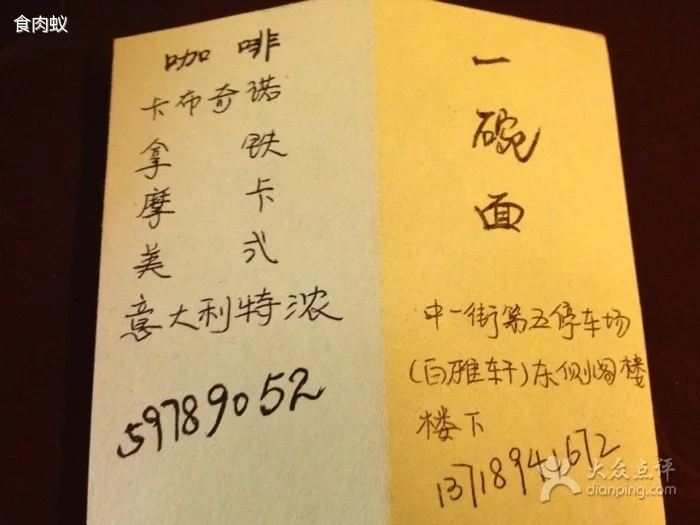 食肉蚁
咖啡
卡布奇诺
拿铁
摩卡
美式
意大利特浓
59789052
一
碗
面
中一街第五停车场
(白雅轩)东侧阁楼
楼下
13718941672
大众点评
dianping.com